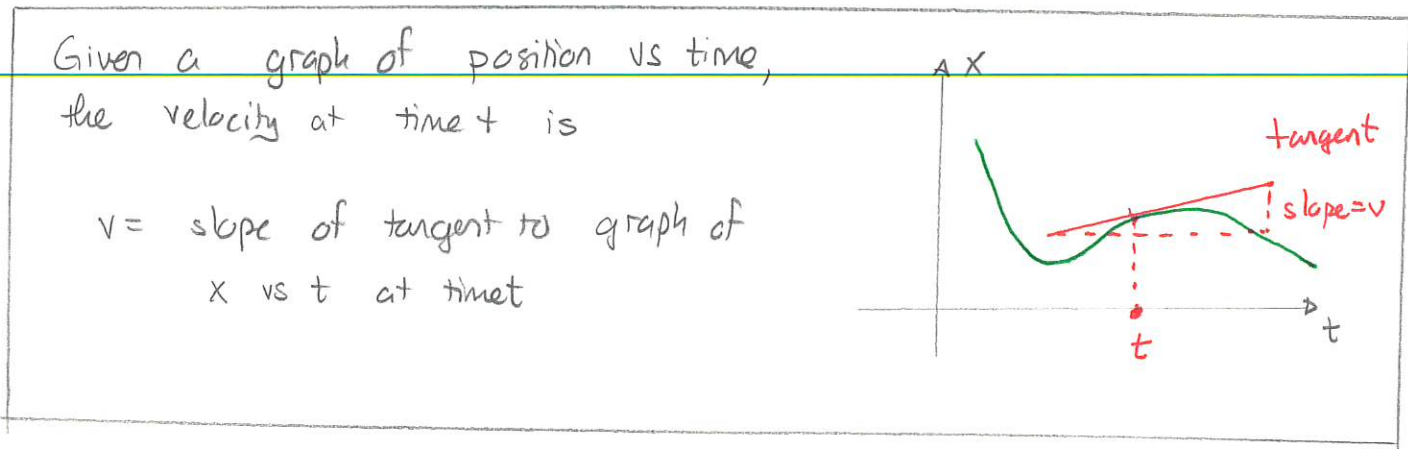 Given a graph of position vs time,
the velocity at time t is
v = slope of tangent to graph of
x vs t at time t
x
tangent
slope = v
t
t